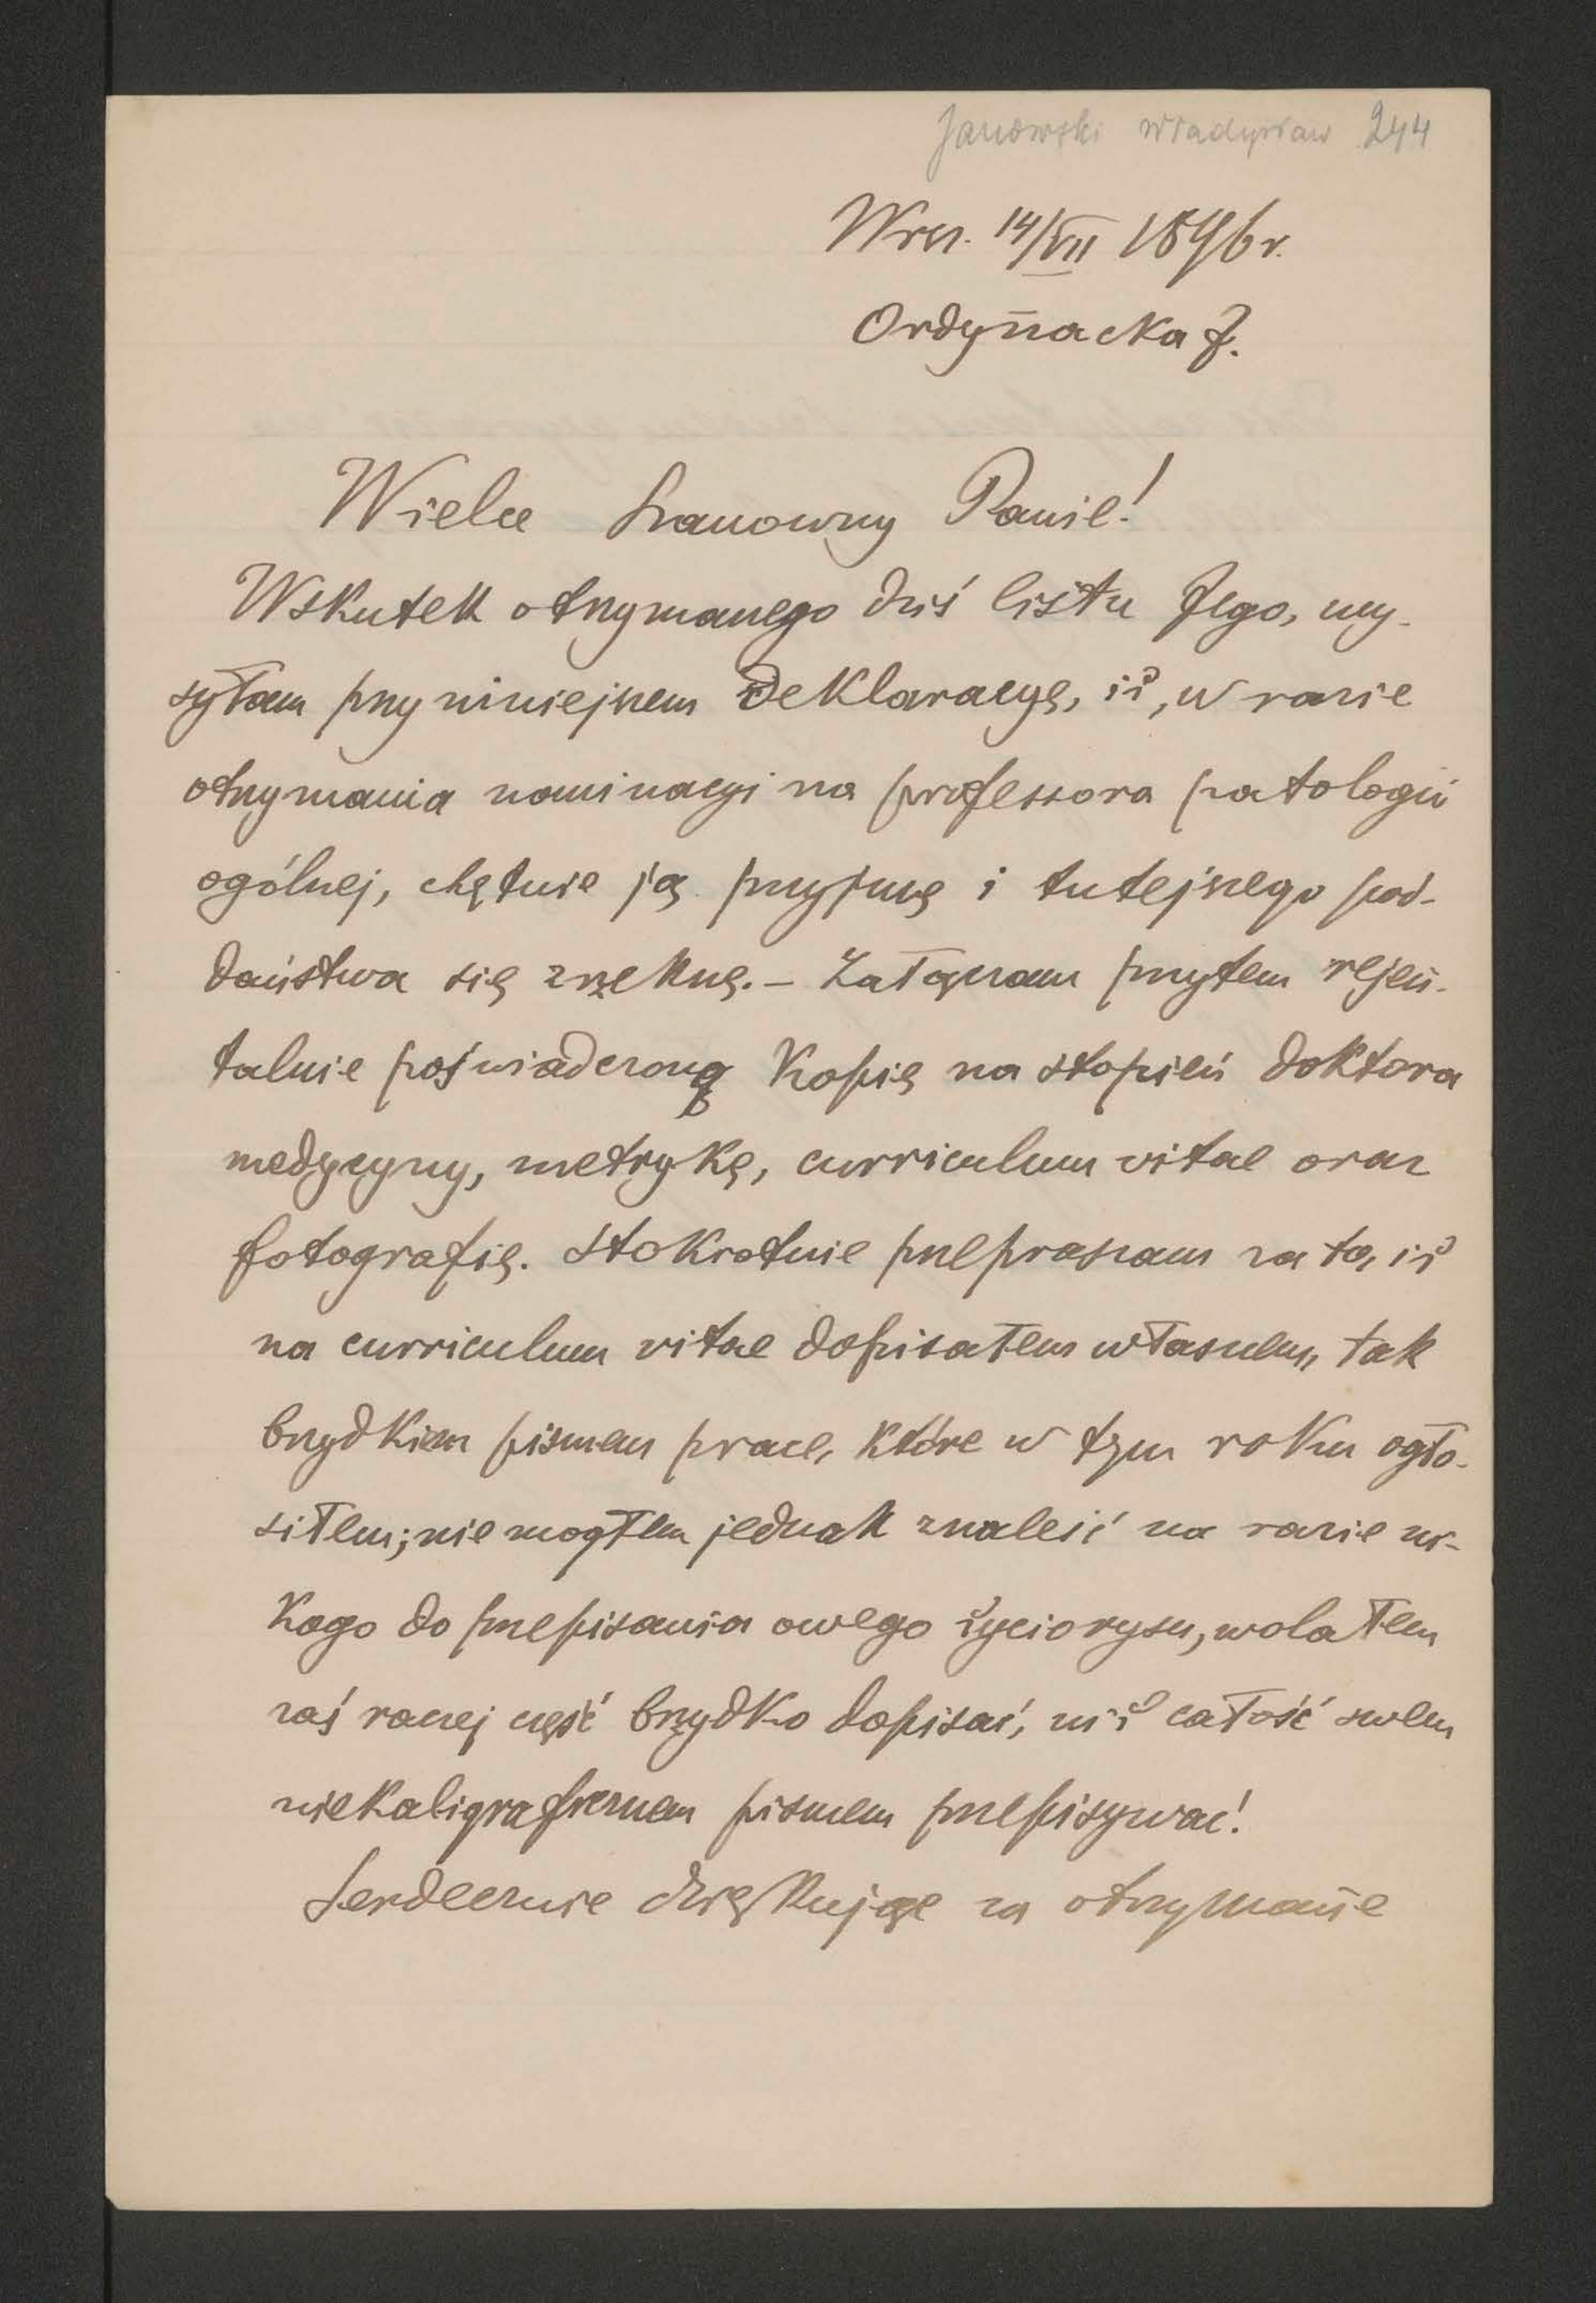 Janowski Władysław 244
Wrsz. 14/VII 1896 r.
Ordynacka 7.
Wielce Szanowny Panie!
Wskutek otrzymanego dziś listu Jego, wy-
syłam przy niniejszem deklaracyę, iż, w razie
otrzymania nominacyi na professora patologii
ogólnej, chętnie ją przyjmę i tutejszego pod-
daństwa się zrzeknę. – Załączam przytem rejen-
talnie poświadczoną kopię na stopień doktora
medycyny, metrykę, curriculum vitae oraz
fotografię. Stokrotnie przepraszam za to, iż
na curriculum vitae dopisałem własnem, tak
brzydkiem pismem prace, które w tym roku ogło-
siłem; nie mogłem jednak znaleść na razie ni-
kogo do przepisania owego życiorysu, wolałem
zaś raczej część brzydko dopisać, niż całość swem
niekaligraficznem pismem przepisywać!
Serdecznie dziękując za otrzymanie